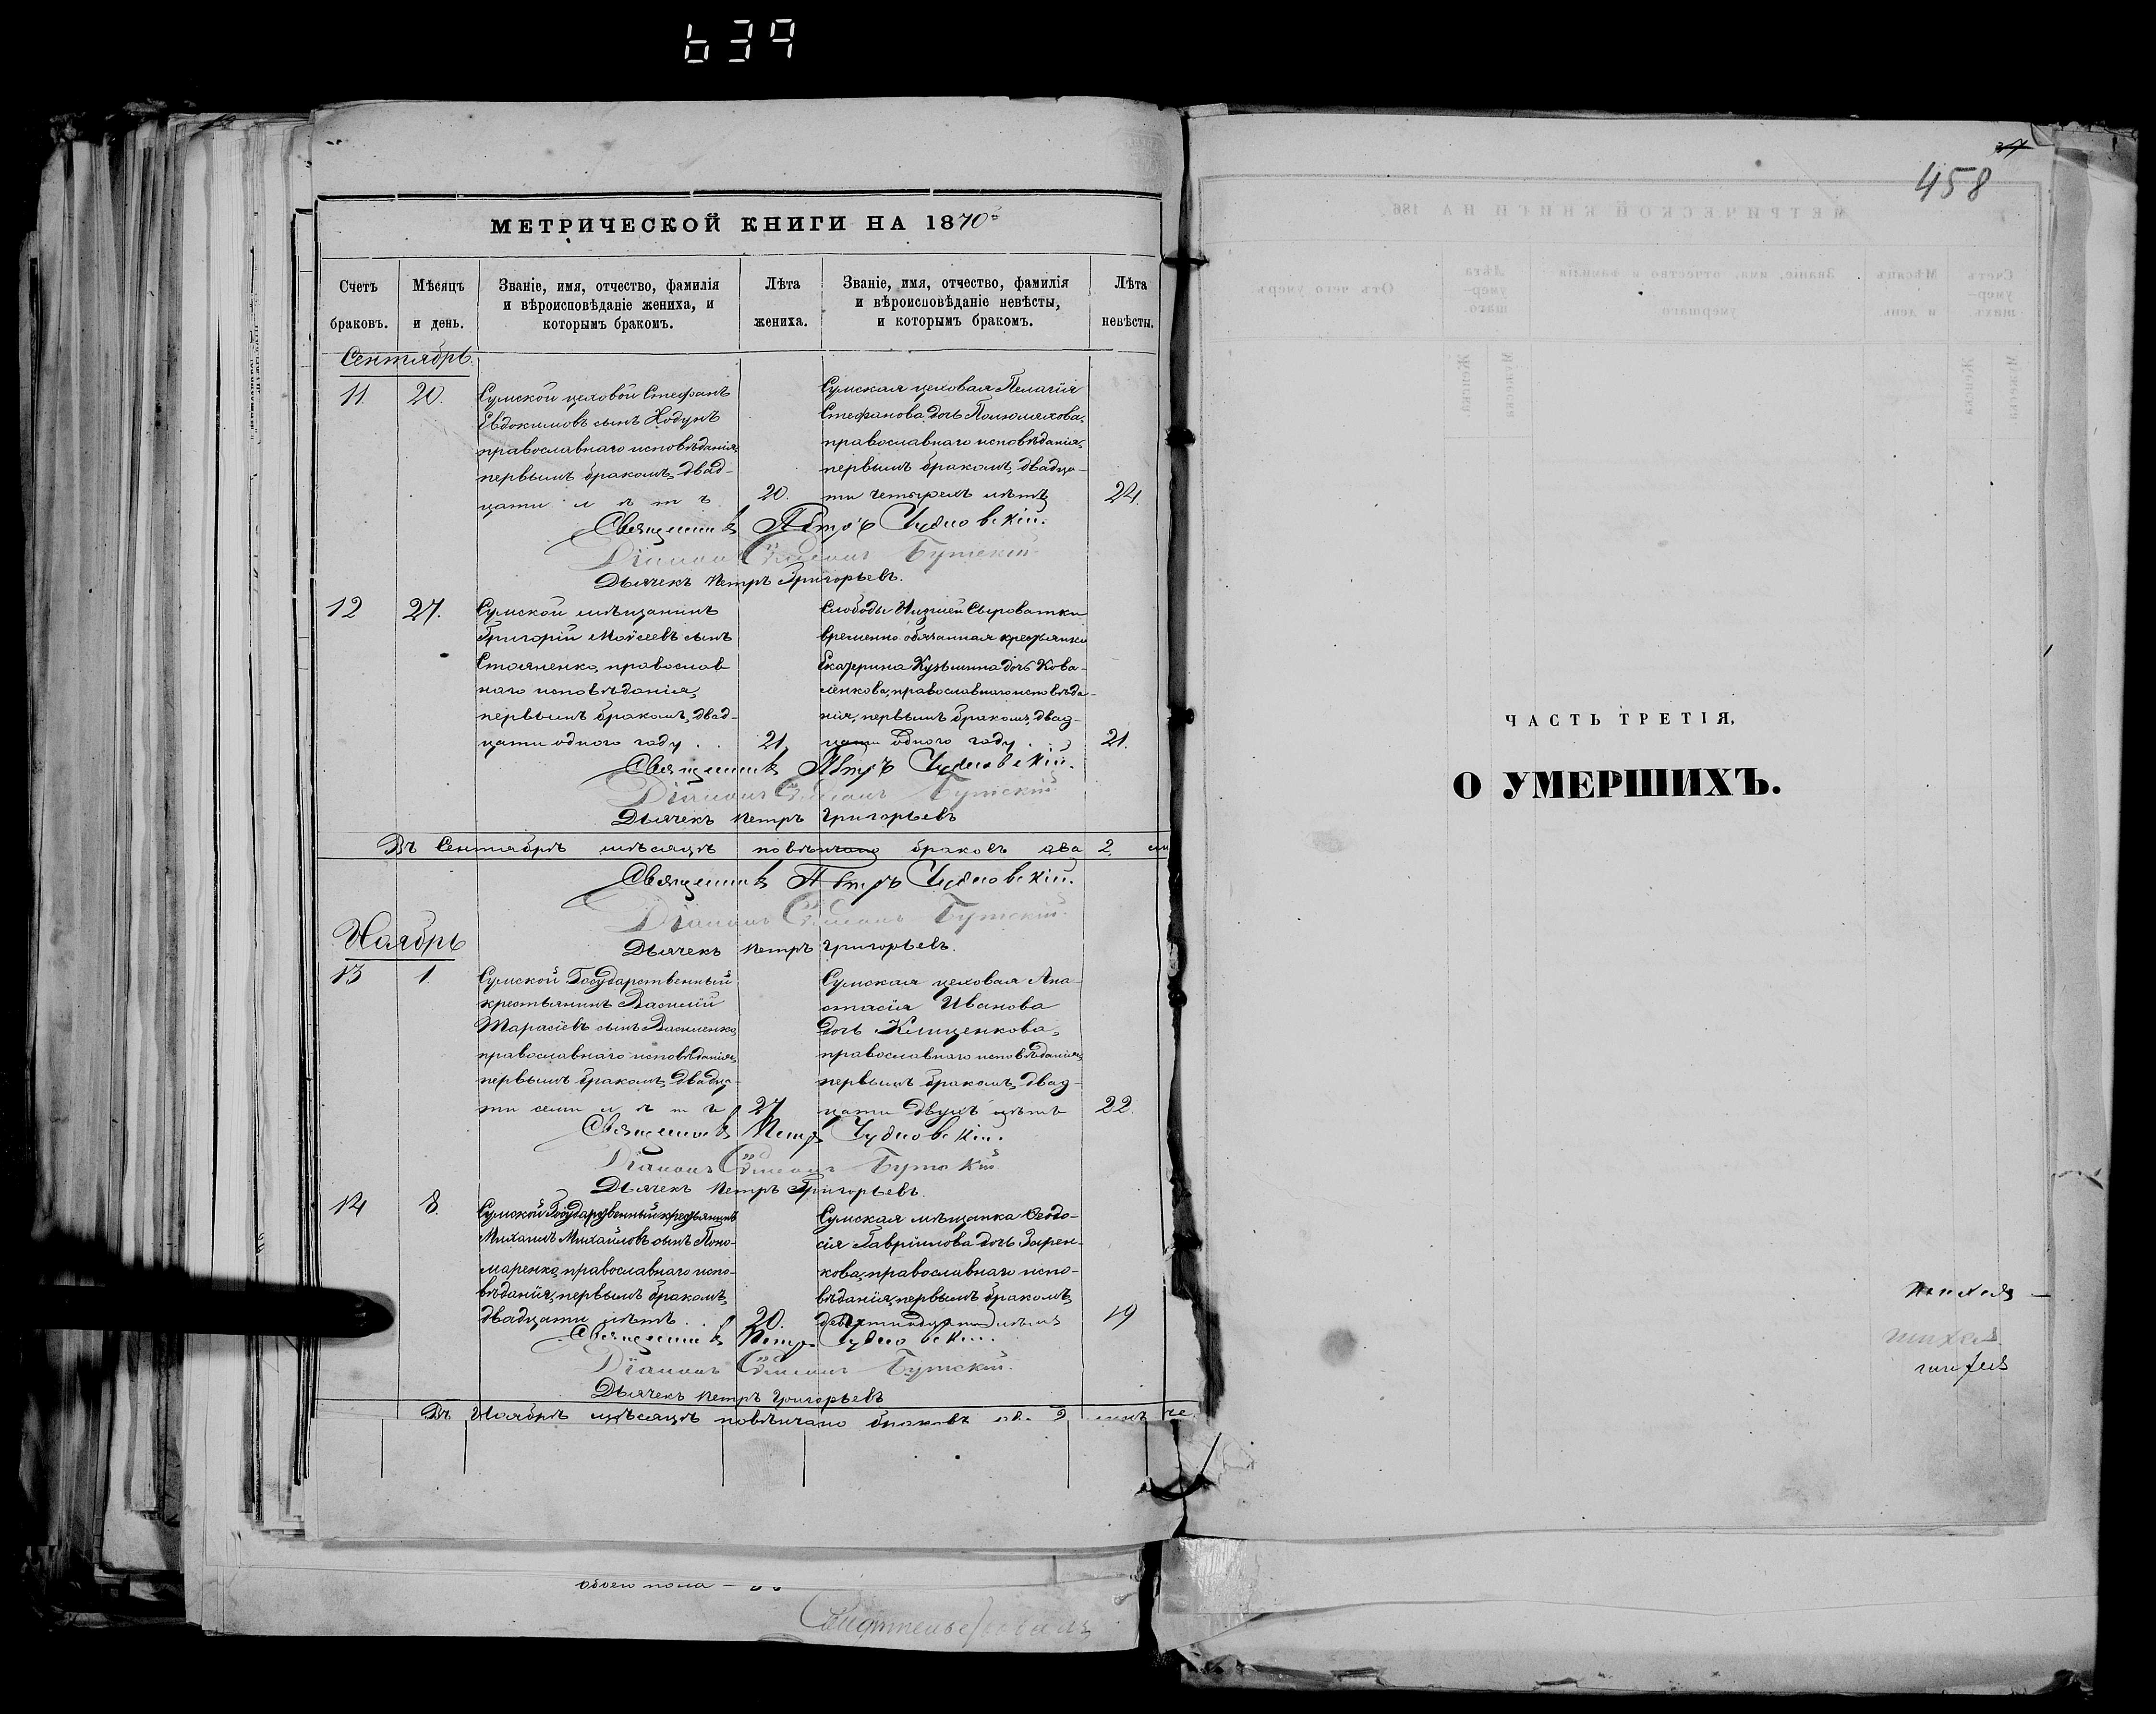 639
МЕТРИЧЕСКОЙ КНИГИ НА 1870
Счетъ браковъ.
Мѣсяцъ и день.
Званіе, имя, отчество, фамилія
и вѣроисповѣданіе жениха, и
которымъ бракомъ.
Лѣта жениха.
Званіе, имя, отчество, фамилія
и вѣроисповѣданіе невѣсты,
и которымъ бракомъ.
Лѣта невѣсты.
Сентябрь
11. 20.
Сумской цеховой Стефанъ
Евдокимовъ сынъ Ходунъ
православнаго исповѣданія,
первымъ бракомъ, двад-
цати лѣтъ 20.
Сумская цеховая Пелагія
Стефанова дочь
православнаго исповѣданія,
первымъ бракомъ, двадца-
ти четырехъ лѣтъ 24.
Священникъ Петръ Чудновскій.
Діаконъ Симеонъ Бутскій
Дьячекъ Петръ Григорьевъ.
12 27.
Сумской мѣщанинъ
Григорій Моѵсеевъ сынъ
Стояненко, православ
наго исповѣданія,
первымъ бракомъ, двад-
цати одного году 21.
Слободы Низшей Сыроватки
временно обязанная крестьянка
Екатерина Кузьмина дочь Кова-
ленкова, православнаго исповѣда-
нія, первымъ бракомъ, двад-
цати одного году 21.
Священникъ Петръ Чудновскій.
Діаконъ Симеонъ Бутскій
Дьячекъ Петръ Григорьевъ
Въ Сентябрѣ мѣсяцѣ повѣнчано браковъ два 2
Священникъ Петръ Чудновскій.
Діаконъ Симеонъ Бутскій.
Дьячекъ Петръ Григорьевъ.
Ноябрь
13 1.
Сумской Государственный
крестьянинъ Василій
Тарасіевъ сынъ Василенко,
православнаго исповѣданія,
первымъ бракомъ, двадца-
ти семи лѣтъ 27
Сумская цеховая Ана-
стасія Иванова
дочь Клищенкова,
православнаго исповѣданія,
первымъ бракомъ, двад-
цати двухъ лѣтъ 22.
Священникъ Петръ Чудновскій.
Діаконъ Симеонъ Бутскій
Дьячекъ Петръ Григорьевъ.
14 8.
Сумской Государственный крестьянинъ
Михаилъ Михайловъ сынъ Поно-
маренко, православнаго испо-
вѣданія, первымъ бракомъ,
двадцати лѣтъ 20.
Сумская мѣщанка Ѳеодо-
сія Гавріилова дочь Зарен-
кова, православнаго испо-
вѣданія, первымъ бракомъ,
девятнадцати лѣтъ 19
Священникъ Петръ Чудновскій.
Діаконъ Симеонъ Бутскій.
Дьячекъ Петръ Григорьевъ
Въ Ноябрѣ мѣсяцѣ повѣнчано браковъ два 2
обоего пола
458
ЧАСТЬ ТРЕТІЯ,
О УМЕРШИХЪ.